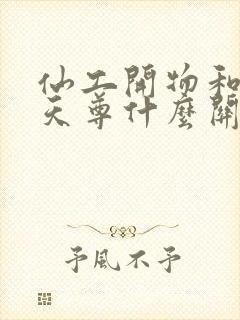 仙工開物和
天尊什麼關
予風不予